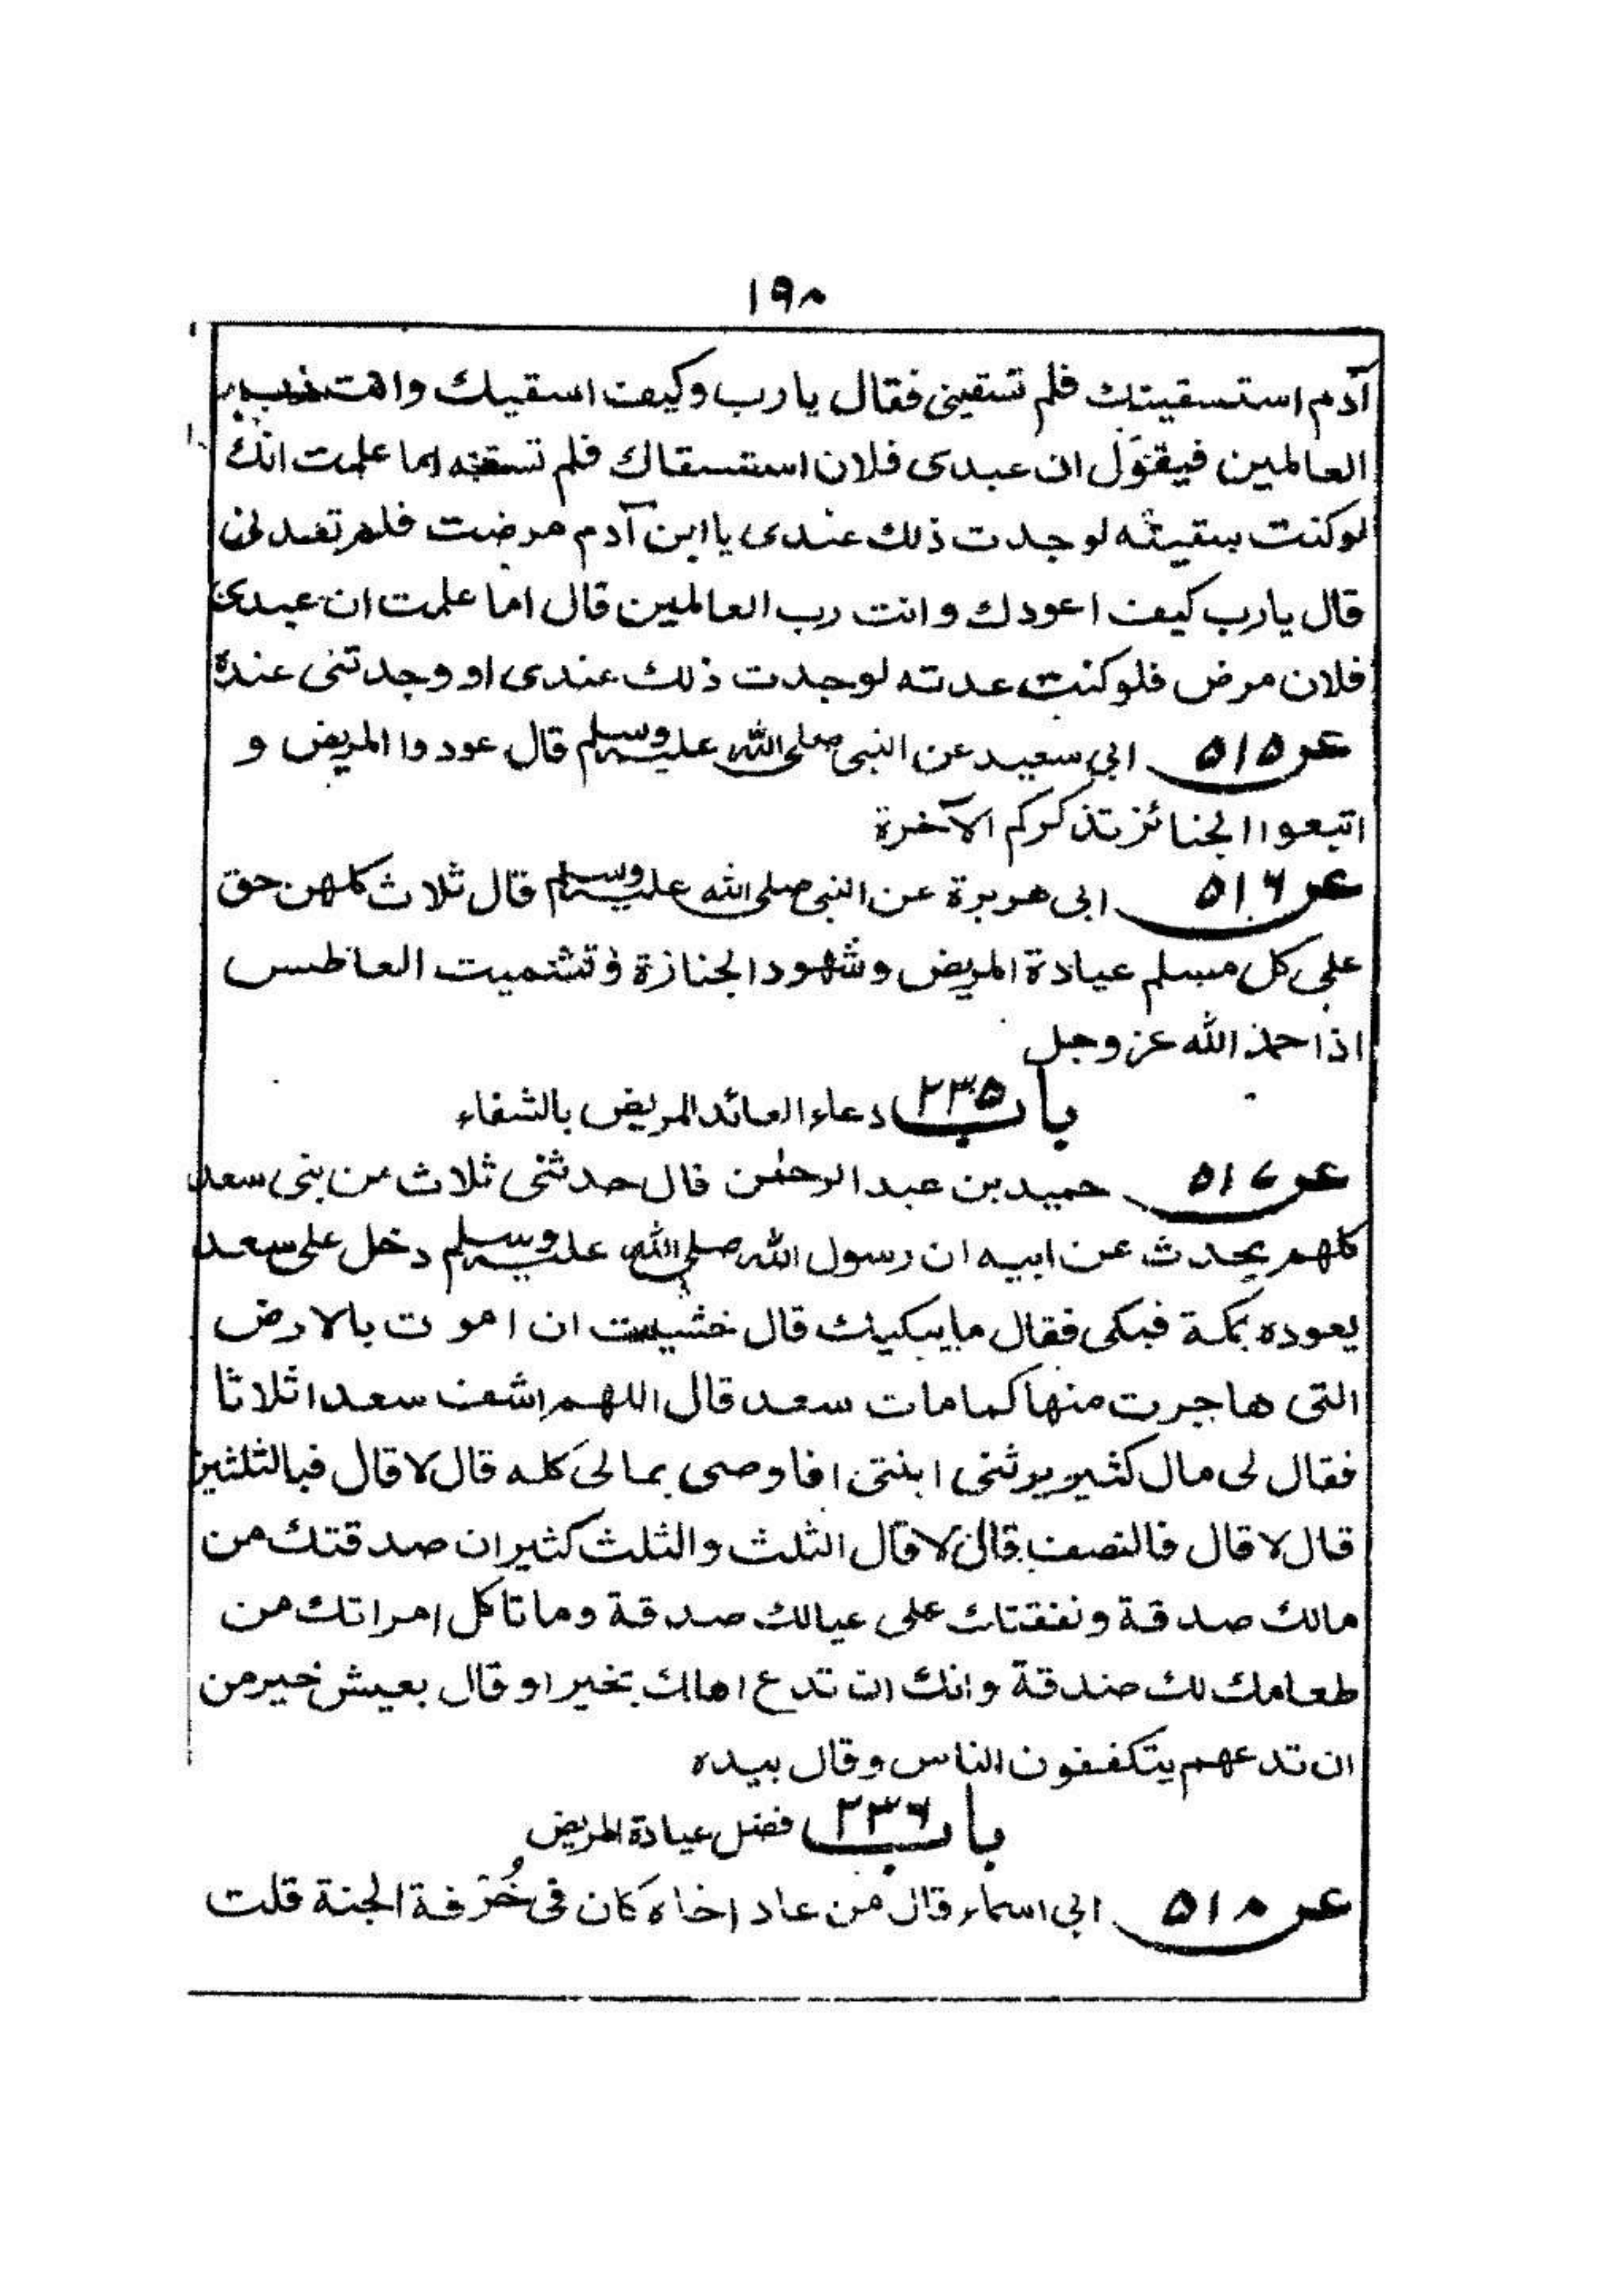 ١٩٨
آدم استسقيتك فلم تسقينى فقال يا رب وكيف اسقيك وانت رب
العالمين فيقول ان عبدى فلان استسقاك فلم تسقه اما علمت انك
لوكنت سقيته لوجدت ذلك عندى يا ابن آدم مرضت فلم تعدنى
قال يارب كيف اعودك وانت رب العالمين قال اما علمت ان عبدى
فلان مرض فلوكنت عدته لوجدت ذلك عندى او وجدتنى عنده
عن ٥١٥ ابى سعيد عن النبى صلى الله عليه وسلم قال عودوا المريض و
اتبعوا الجنائز تذكركم الآخرة
عن ٥١٦ ابى هريرة عن النبى صلى الله عليه وسلم قال ثلاث كلهن حق
على كل مسلم عيادة المريض وشهود الجنازة وتشميت العاطس
اذا حمد الله عز وجل
باب ٢٣٥ دعاء العائد المريض بالشفاء
عن ٥١٧ حميد بن عبد الرحمٰن قال حدثنى ثلاث من بنى سعد
كلهم يحدث عن ابيه ان رسول الله صلى الله عليه وسلم دخل على سعد
يعوده بمكة فبكى فقال ما يبكيك قال خشيت ان اموت بالارض
التى هاجرت منها كما مات سعد قال اللهم اشف سعدا ثلاثا
فقال لى مال كثير يرثنى ابنتى افاوصى بمالى كله قال لا قال فبالثلثين
قال لا قال فالنصف قال لا قال الثلث والثلث كثير ان صدقتك من
مالك صدقة ونفقتك على عيالك صدقة وما تاكل امراتك من
طعامك لك صدقة وانك ان تدع اهلك بخير او قال بعيش خير من
ان تدعهم يتكففون الناس وقال بيده
باب ٢٣٦ فضل عيادة المريض
عن ٥١٨ ابى اسماء قال من عاد اخاه كان فى خُرْفة الجنة قلت